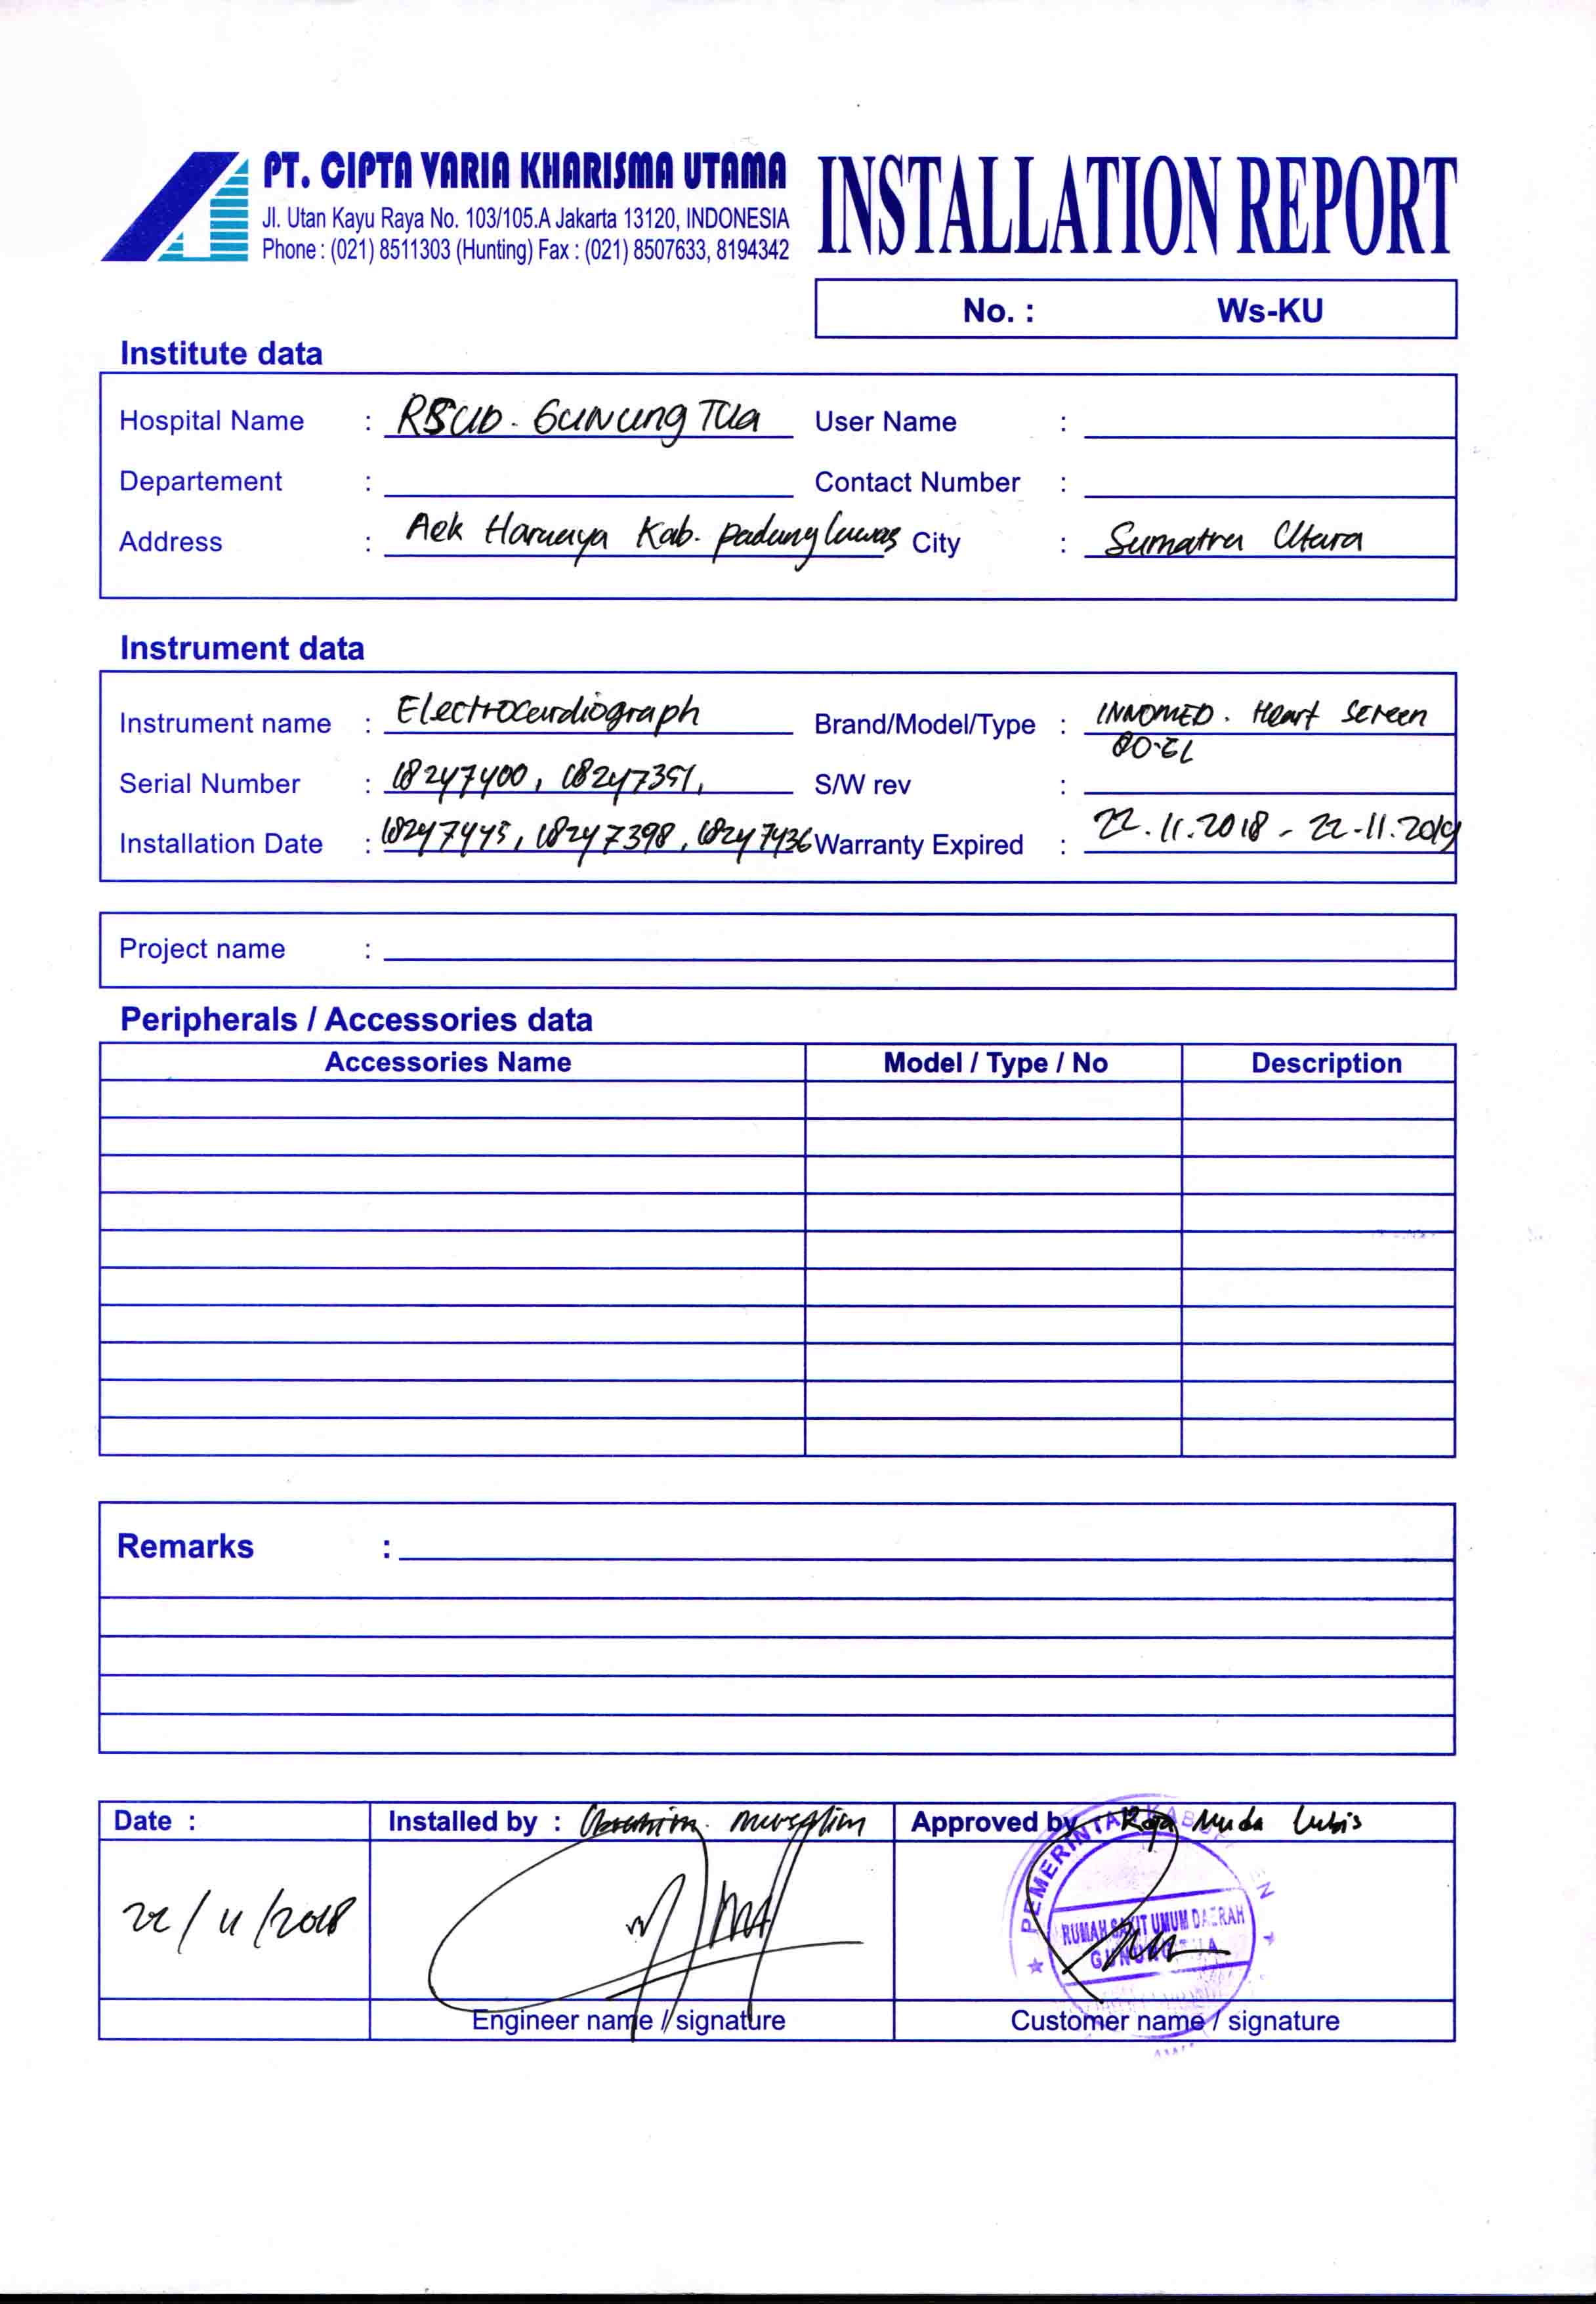 PT. CIPTA VARIA KHARISMA UTAMA
Jl. Utan Kayu Raya No. 103/105.A Jakarta 13120, INDONESIA
Phone : (021) 8511303 (Hunting) Fax : (021) 8507633, 8194342
INSTALLATION REPORT
No. : Ws-KU
Institute data
Hospital Name : RSUD. Gunung Tua User Name :
Departement : Contact Number :
Address : Aek Haruaya Kab. padang lawas City : Sumatra Utara
Instrument data
Instrument name : Electrocardiograph Brand/Model/Type : INNOMED. Heart Screen
80-GL
Serial Number : 18247400, 18247391, S/W rev :
Installation Date : 18247445, 18247398, 18247436 Warranty Expired : 22.11.2018 - 22-11.2019
Project name :
Peripherals / Accessories data
Accessories Name Model / Type / No Description
Remarks :
Date : Installed by : Approved by Raja Muda Lubis
22/11/2018
PEMERINTAH KABUPATEN
RUMAH SAKIT UMUM DAERAH
GUNUNG TUA
Engineer name / signature Customer name / signature